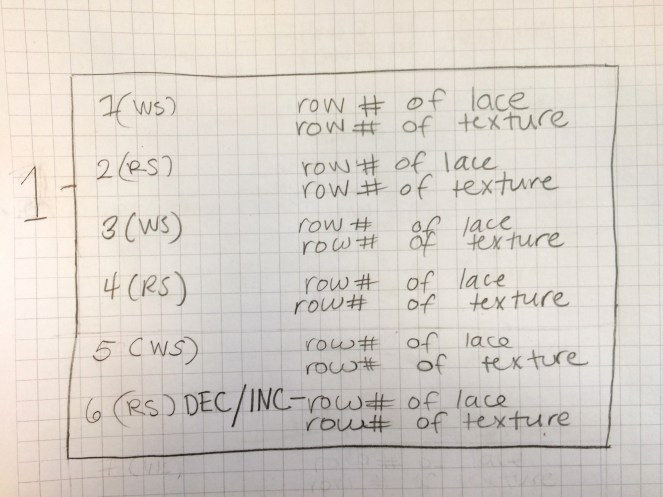 1(WS) row # of lace
row # of texture
2(RS) row # of lace
row # of texture
1
3(WS) row # of lace
row # of texture
4(RS) row # of lace
row # of texture
5 (WS) row # of lace
row # of texture
6 (RS) DEC/INC-row # of lace
row # of texture